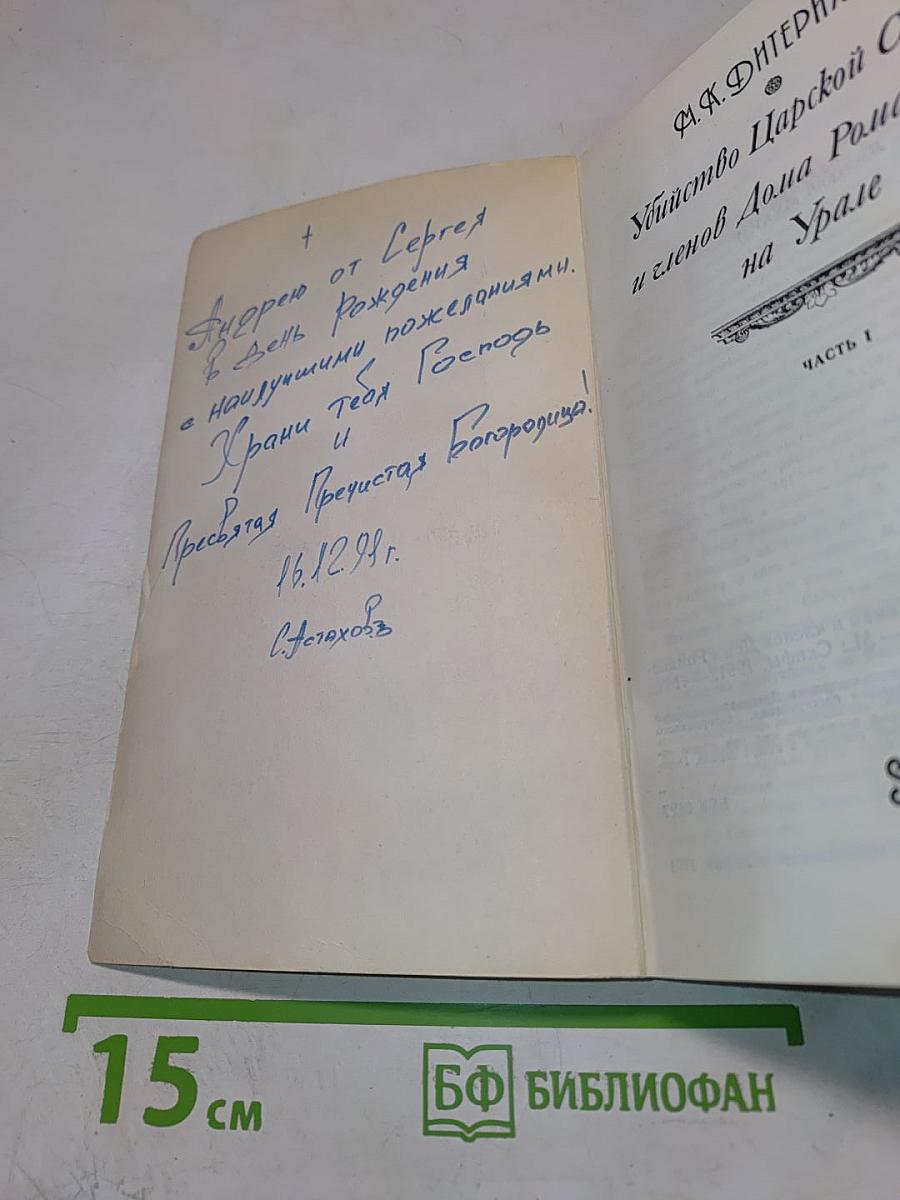 +
Андрею от Сергея
в День Рождения
с наилучшими пожеланиями.
Храни тебя Господь
и
Пресвятая Пречистая Богородица!
16.12.91г.
С.Астаховъ
М.К.ДИТЕРИХ
Убийство Царской С
и членов Дома Рома
на Урале
ЧАСТЬ I
15 см
БФ БИБЛИОФАН